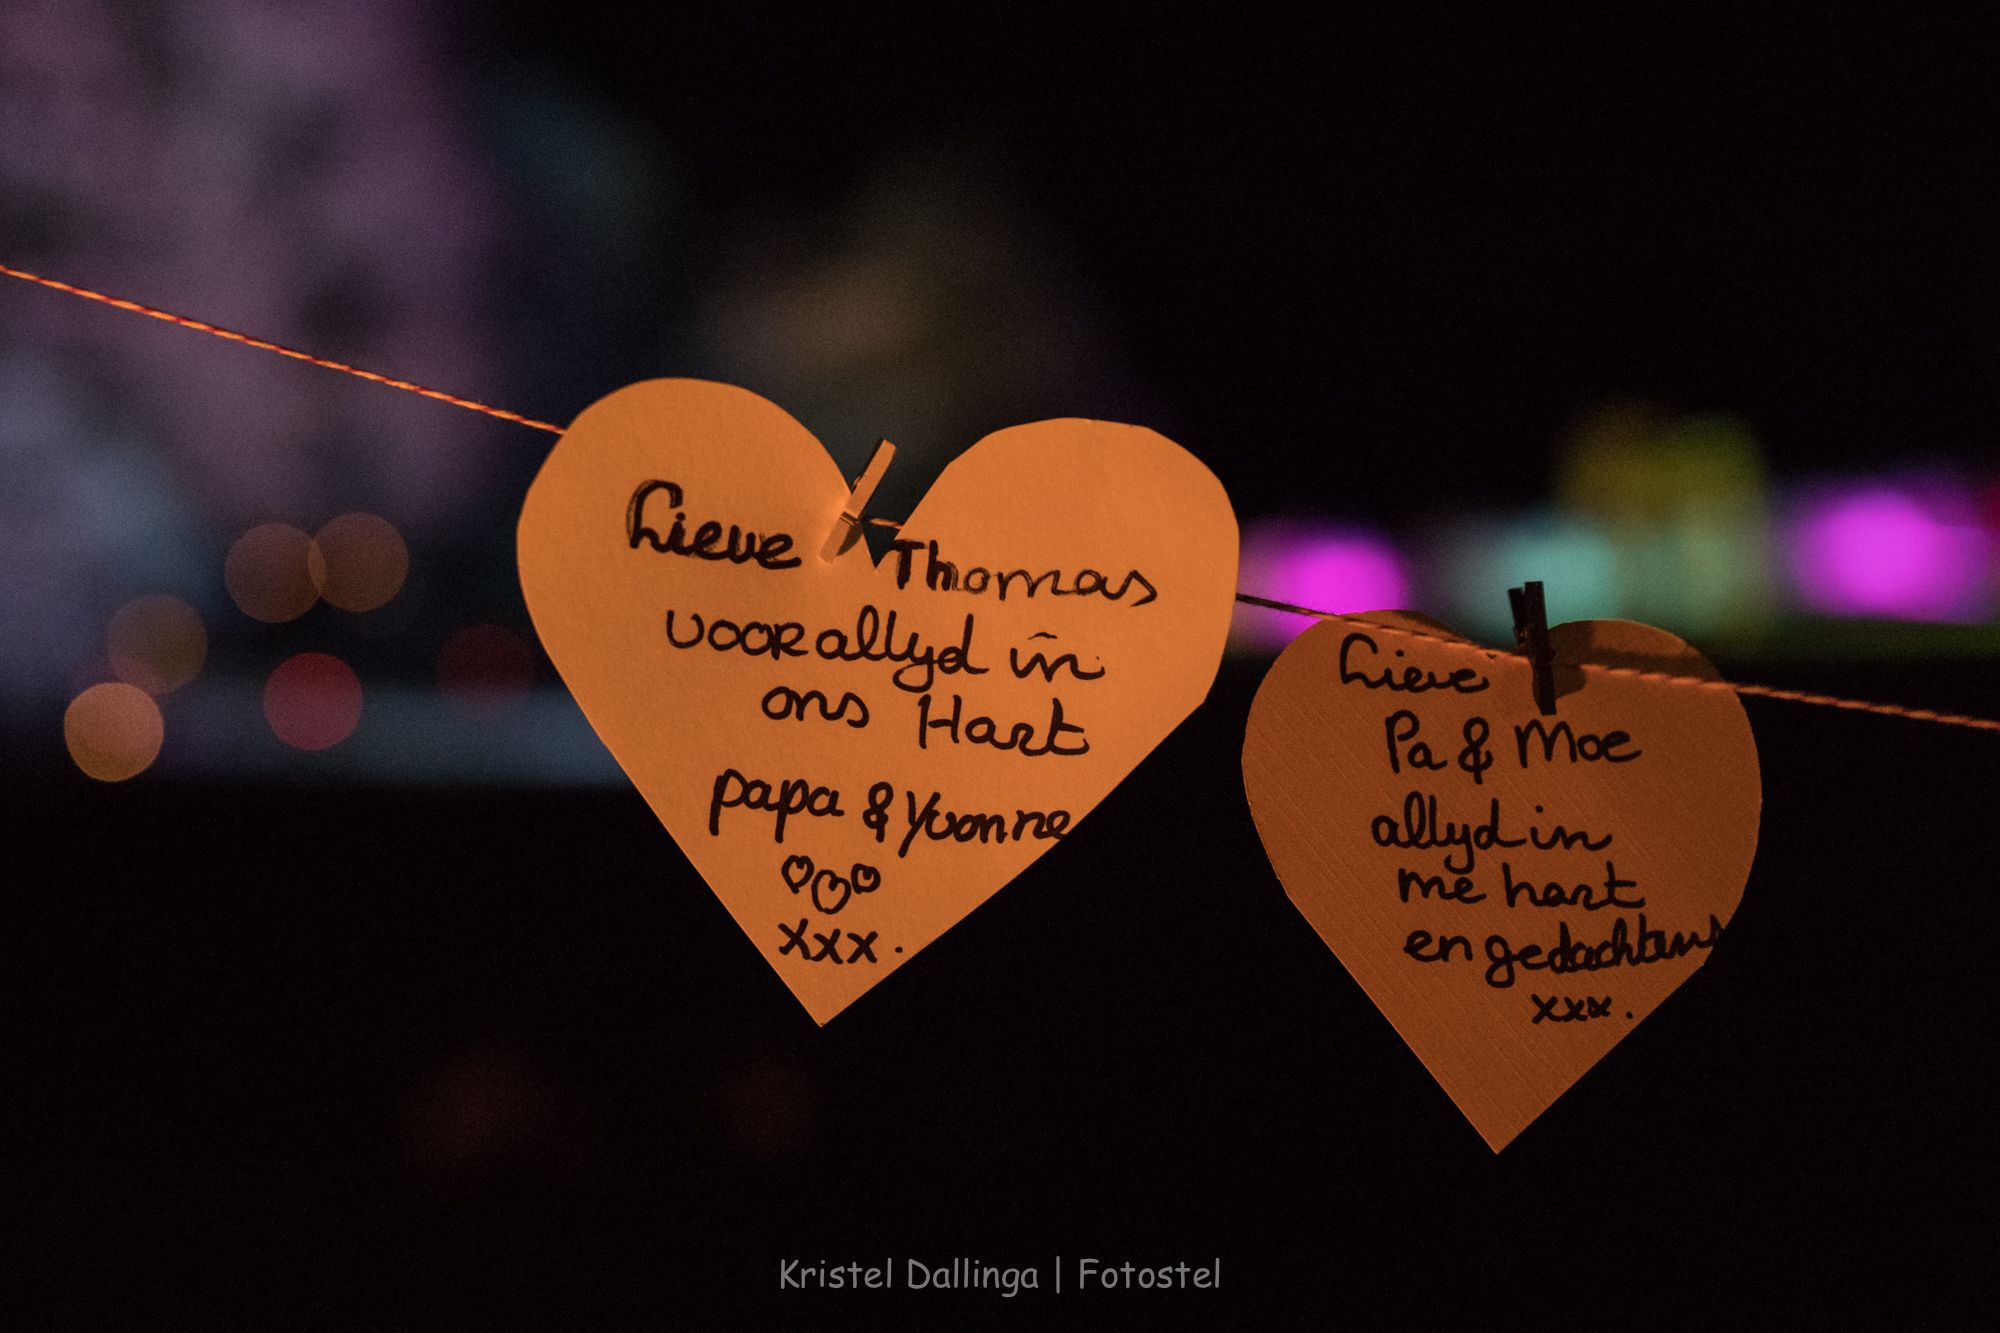 Lieve Thomas
voorallyd in
ons Hart
papa & Yvonne
xxx.
Lieve
Pa & Moe
allyd in
me hart
en gedachtens
xxx.
Kristel Dallinga | Fotostel